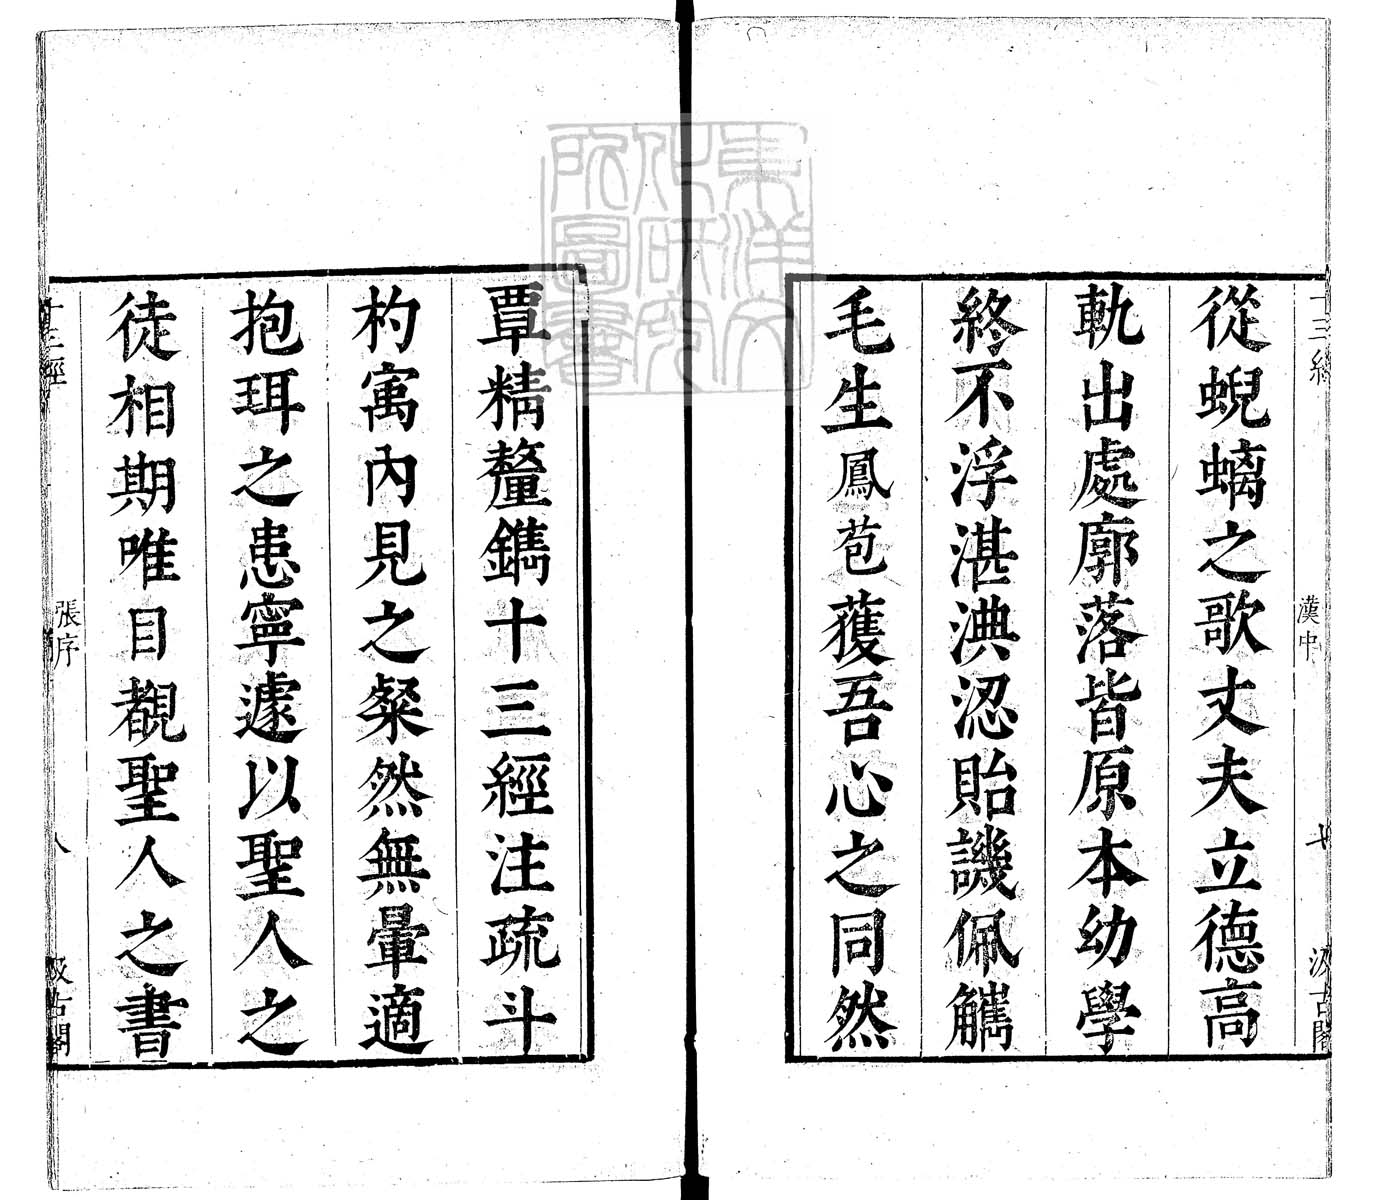 從蜺螭之歌丈夫立德高
軌出處廓落皆原本幼學
終不浮湛淟涊貽譏佩觿
毛生鳳苞獲吾心之同然
覃精釐鐫十三經注疏斗
杓寓內見之粲然無暈適
抱珥之患寧遽以聖人之
徒相期唯目覩聖人之書
十三經
漢中
七
汲古閣
十三經
張序
八
汲古閣
東洋文
化研究
所圖書